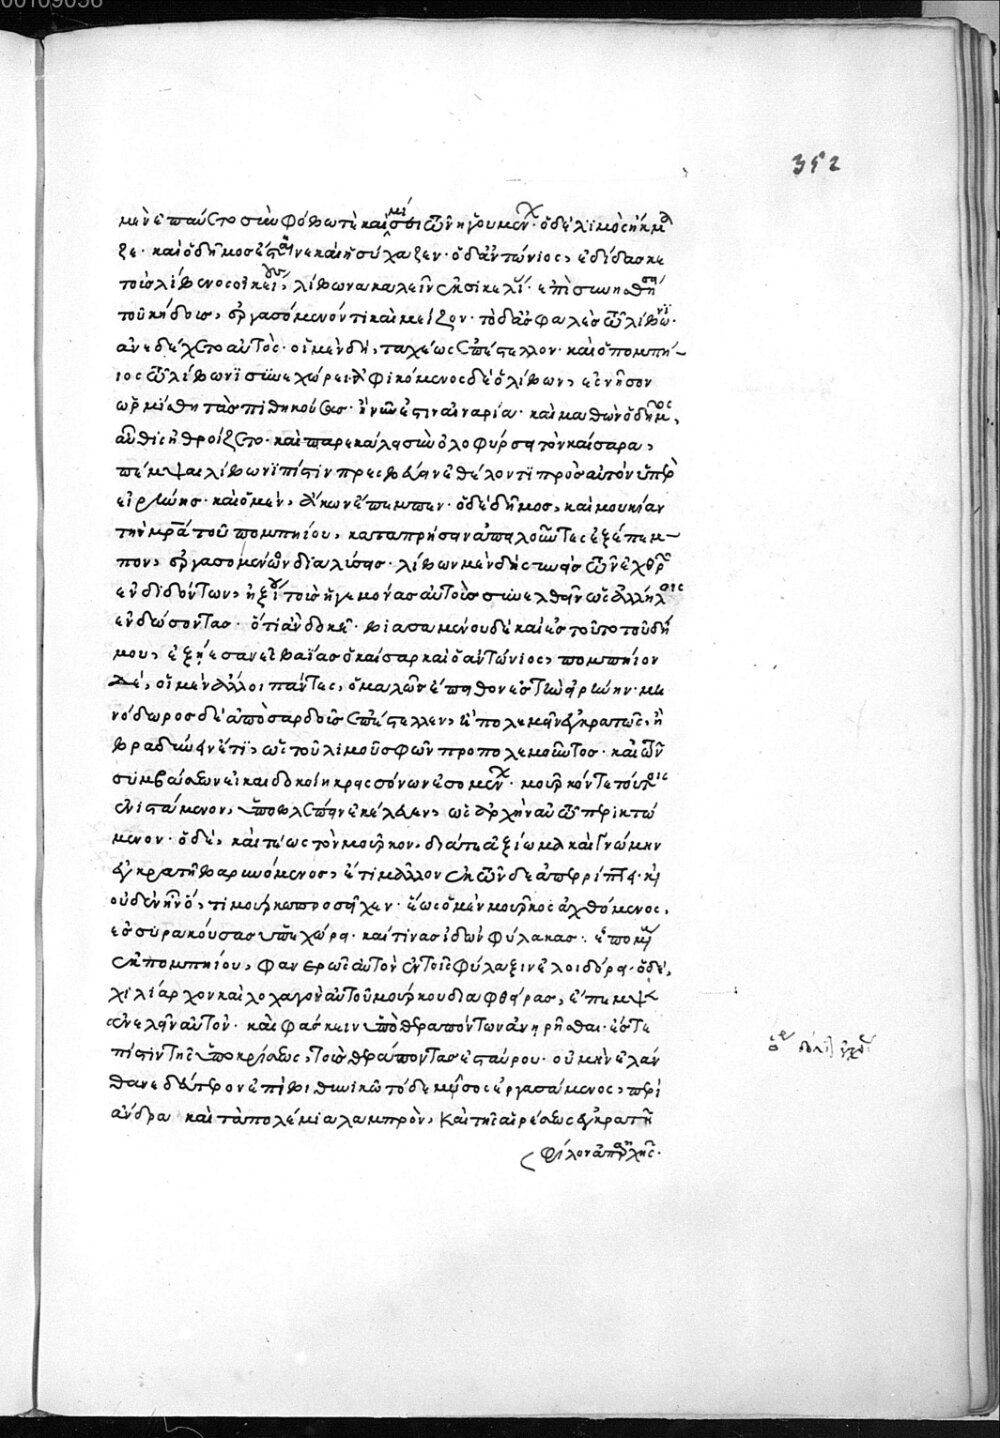 μὲν ἐπαύετο σὺν φόβω τὲ καὶ δυσμεν τῶν ἡγουμένων· ὁ δὲ λιμὸς ἤκμα
ζε· καὶ ὁ δῆμος ἔστενε καὶ ἡσύχαζεν· ὁ δ' ἀντώνιος, ἐδίδασκε
τοὺς λίβωνος οἰκείους, λίβωνα καλεῖν ἐκ σικελίας· ἐπὶ συνησθήσει
τοῦ κήδους, ἐργασόμενόν τι καὶ μεῖζον· τὸ δ' ἀσφαλὲς τῶ λίβωνι·
ἀνεδέχετο αὐτός· οἱ μὲν δὴ, ταχέως ἐπέστελλον· καὶ ὁ πομπή-
ιος τῶ λίβωνι συνεχώρει· ἀφικόμενος δὲ ὁ λίβων, ἐς νῆσον
ὡρμίσθη τὰς πιθηκούσας· ἣ νῦν ἐστιν αἰναρία· καὶ μαθὼν ὁ δῆμος,
αὖθις ἠθροίζετο· καὶ παρεκάλει σὺν ὀλοφύρσει τὸν καίσαρα,
πέμψαι λίβωνι πίστιν πρεσβεύειν ἐθέλοντι πρὸς αὐτὸν ὑπὲρ
εἰρήνης· καὶ ὁ μὲν, ἄκων ἔπεμπεν· ὁ δὲ δῆμος, καὶ μουκίαν
τὴν μρα τοῦ πομπηίου, καταπρήσειν ἀπειλοῦντες ἐξέπεμ-
πον, ἐργασομένην διαλύσεις· λίβων μὲν δὴ τῶν ἐχθρῶν
ἐνδιδόντων, ἠξίου τοὺς ἡγεμόνας αὐτοὺς συνελθεῖν ὡς ἀλλήλοις
ἐνδώσοντας· ὅτι ἂν δοκῇ· βιασαμένου δὲ καὶ ἐς τοῦτο τοῦ δή
μου, ἐξῄεσαν ἐς βαΐας ὁ καῖσαρ καὶ ὁ ἀντώνιος, πομπήιον
δὲ, οἱ μὲν ἄλλοι πάντες, ὁμαλῶς ἔπειθον ἐς τὴν εἰρήνην· μη
νόδωρος δὲ ἀπὸ σαρδοῦς ἐπέστελλεν, ἢ πολεμεῖν ἐγκρατῶς, ἢ
βραδύνειν ἔτι, ὡς τοῦ λιμοῦ σφῶν προπολεμοῦντος· καὶ τῶν
συμβάσεων εἰ καὶ δοκοίη κρεισσόνων ἐσομένων· μοῦρκόν τε τούτοις
ἐνιστάμενον, ὑποβλέπειν ἐκέλευεν, ὡς ἀρχὴν αὐτῶ περικτώ
μενον· ὁ δὲ, καὶ τέως τὸν μοῦρκον, διά τε ἀξίωμα καὶ γνώμην
ἐγκρατῆ βαρυνόμενος, ἔτι μᾶλλον ἐκ τῶνδε ἀπερρίπτει· κὶ
οὐδὲν ἦν ὅ, τι μούρκω προσεῖχεν· ἕως ὁ μὲν μοῦρκος ἀχθόμενος,
ἐς συρακούσας ὑπεχώρει· καί τινας ἰδὼν φύλακας· ἑπομένους
ἐκ πομπηίου, φανερῶς αὐτὸν ἐν τοῖς φύλαξιν ἐλοιδόρει· ὁ δὲ,
χιλίαρχον καὶ λοχαγὸν αὐτοῦ μούρκου διαφθείρας, ἔπεμψεν
ἀνελεῖν αὐτὸν· καὶ φάσκειν ὑπὸ θεραπόντων ἀνῃρῆσθαι· ἔς τε
πίστιν τῆς ὑποκρίσεως, τοὺς θεράποντας ἐσταύρου· οὐ μὴν ἔλαν
θανε δεύτερον ἐπὶ βιθυνικῶ τόδε μῦσος ἐργασάμενος, περὶ
ἄνδρα καὶ τὰ πολέμια λαμπρὸν, καὶ τῆς αἱρέσεως ἐγκρατῆ
φίλον ἀπαρχῆς·
352